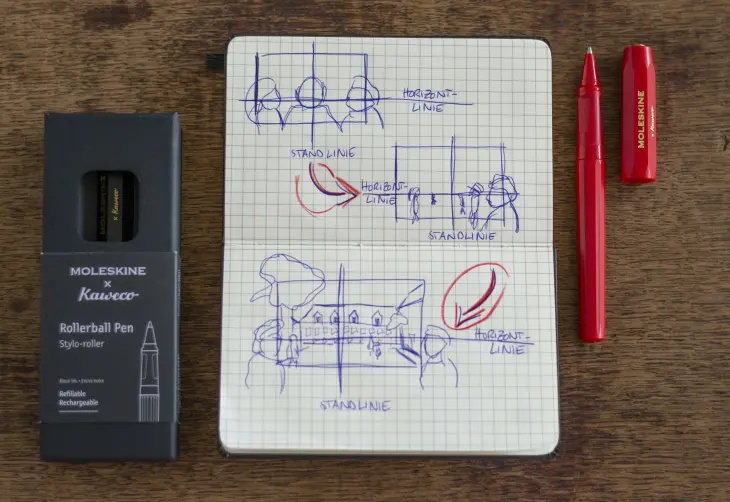 MOLESKINE
×
Kaweco
MOLESKINE
×
Kaweco
Rollerball Pen
Stylo-roller
Refillable
Rechargeable
HORIZONT-
LINIE
STANDLINIE
HORIZONT-
LINIE
STANDLINIE
HORIZONT-
LINIE
STANDLINIE
MOLESKINE
× Kaweco